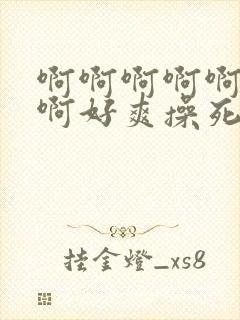 啊啊啊啊啊
啊好爽操死
挂金燈_xs8